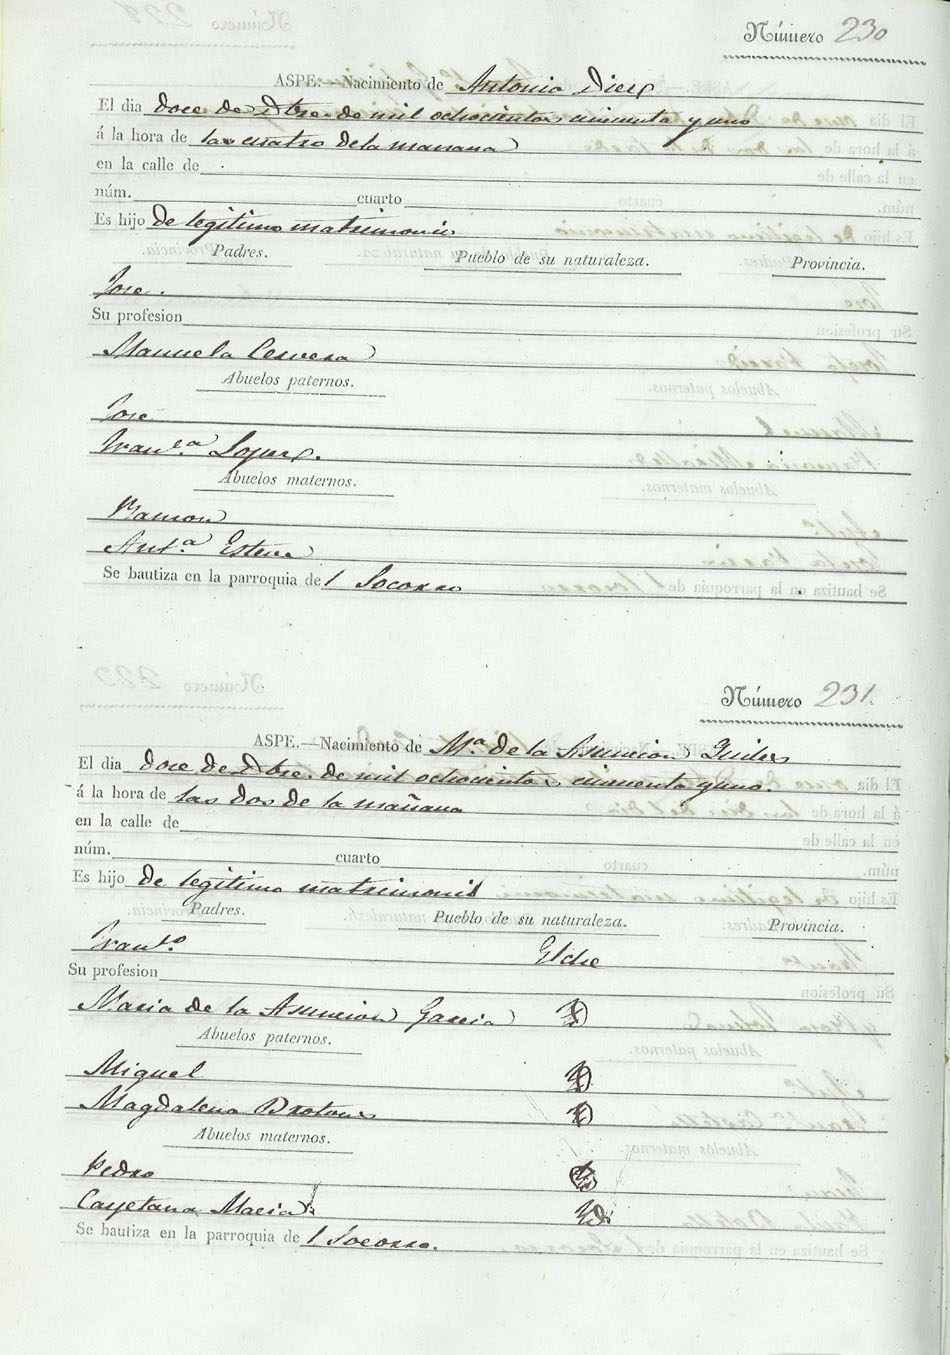 Número 230
ASPE.—Nacimiento de Antonia Diez
El dia doce de Dbre. de mil ochocientos cincuenta y uno
á la hora de las cuatro de la mañana
en la calle de
núm. cuarto
Es hijo de legitimo matrimonio
Padres. Pueblo de su naturaleza. Provincia.
Jose.
Su profesion
Manuela Cervera
Abuelos paternos.
José
Fran.ca Lopez.
Abuelos maternos.
Ramon
Ant.a Esteve
Se bautiza en la parroquia del Socorro
Número 231.
ASPE.—Nacimiento de Ma. de la Asuncion Guiler
El dia doce de Dbre. de mil ochocientos cincuenta y uno.
á la hora de las dos de la mañana
en la calle de
núm. cuarto
Es hijo de legitimo matrimonio
Padres. Pueblo de su naturaleza. Provincia.
Fran.co Elche
Su profesion
Maria de la Asuncion Garcia
Abuelos paternos.
Miguel
Magdalena Brotons
Abuelos maternos.
Pedro
Cayetana Macia
Se bautiza en la parroquia del Socorro.